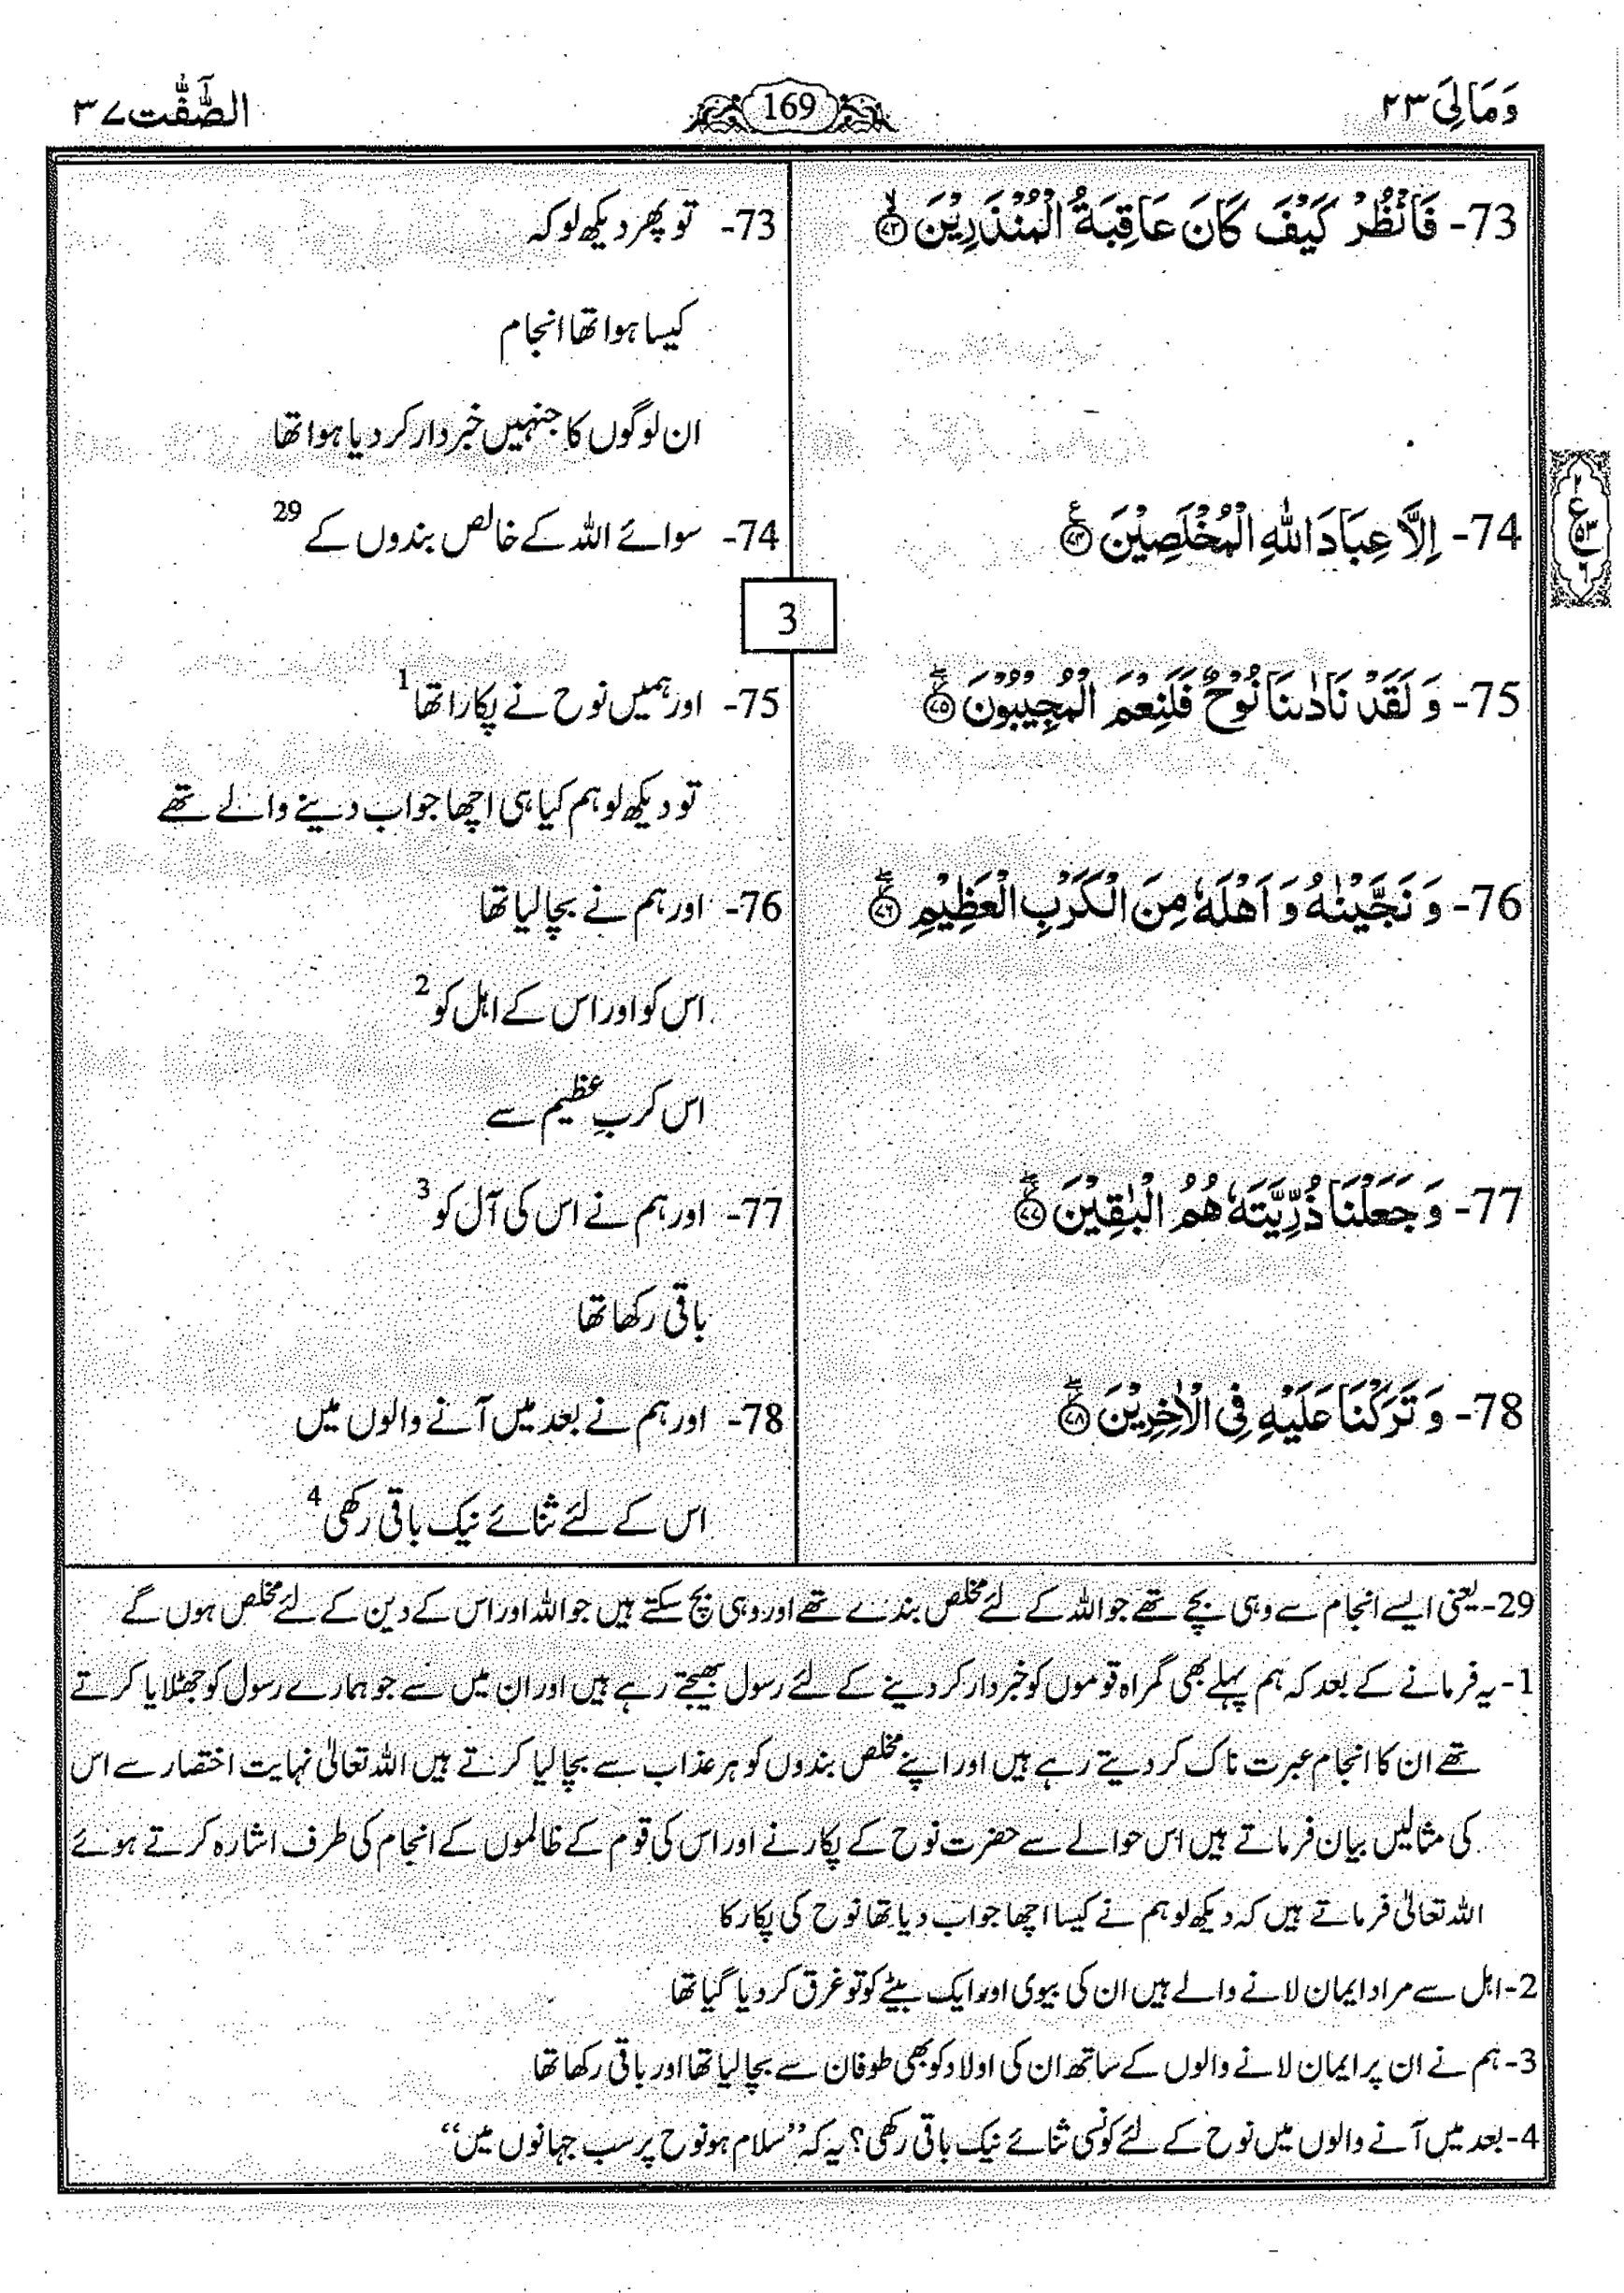 وَمَالِیَ ۲۳
169
الصّٰٓفّٰت ۳۷
73- فَانْظُرْ كَیْفَ كَانَ عَاقِبَةُ الْمُنْذَرِیْنَ ﴿۷۳﴾ۙ
73- تو پھر دیکھ لو کہ
کیسا ہوا تھا انجام
ان لوگوں کا جنہیں خبردار کر دیا ہوا تھا
74- اِلَّا عِبَادَ اللّٰهِ الْمُخْلَصِیْنَ ﴿۷۴﴾ع
74- سوائے اللہ کے خالص بندوں کے 29
3
75- وَ لَقَدْ نَادٰىنَا نُوْحٌ فَلَنِعْمَ الْمُجِیْبُوْنَ ﴿۷۵﴾
75- اور ہمیں نوح نے پکارا تھا 1
تو دیکھ لو ہم کیا ہی اچھا جواب دینے والے تھے
76- وَ نَجَّیْنٰهُ وَ اَهْلَهٗ مِنَ الْكَرْبِ الْعَظِیْمِ ﴿۷۶﴾
76- اور ہم نے بچا لیا تھا
اس کو اور اس کے اہل کو 2
اس کربِ عظیم سے
77- وَ جَعَلْنَا ذُرِّیَّتَهٗ هُمُ الْبٰقِیْنَ ﴿۷۷﴾
77- اور ہم نے اس کی آل کو 3
باقی رکھا تھا
78- وَ تَرَكْنَا عَلَیْهِ فِی الْاٰخِرِیْنَ ﴿۷۸﴾
78- اور ہم نے بعد میں آنے والوں میں
اس کے لئے ثنائے نیک باقی رکھی 4
29- یعنی ایسے انجام سے وہی بچے تھے جو اللہ کے لئے مخلص بندے تھے اور وہی بچ سکتے ہیں جو اللہ اور اس کے دین کے لئے مخلص ہوں گے
1- یہ فرمانے کے بعد کہ ہم پہلے بھی گمراہ قوموں کو خبردار کر دینے کے لئے رسول بھیجتے رہے ہیں اور ان میں سے جو ہمارے رسول کو جھٹلایا کرتے
تھے ان کا انجام عبرت ناک کر دیتے رہے ہیں اور اپنے مخلص بندوں کو ہر عذاب سے بچا لیا کرتے ہیں اللہ تعالیٰ نہایت اختصار سے اس
کی مثالیں بیان فرماتے ہیں اس حوالے سے حضرت نوح کے پکارنے اور اس کی قوم کے ظالموں کے انجام کی طرف اشارہ کرتے ہوئے
اللہ تعالیٰ فرماتے ہیں کہ دیکھ لو ہم نے کیسا اچھا جواب دیا تھا نوح کی پکار کا
2- اہل سے مراد ایمان لانے والے ہیں ان کی بیوی اور ایک بیٹے کو تو غرق کر دیا گیا تھا
3- ہم نے ان پر ایمان لانے والوں کے ساتھ ان کی اولاد کو بھی طوفان سے بچا لیا تھا اور باقی رکھا تھا
4- بعد میں آنے والوں میں نوح کے لئے کونسی ثنائے نیک باقی رکھی؟ یہ کہ ”سلام ہو نوح پر سب جہانوں میں“